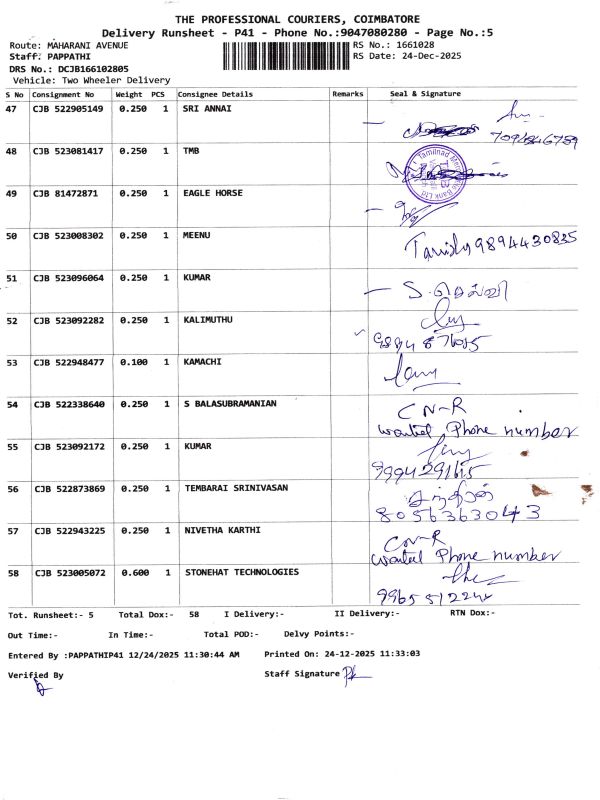 THE PROFESSIONAL COURIERS, COIMBATORE
Delivery Runsheet - P41 - Phone No.:9047080280 - Page No.:5
Route: MAHARANI AVENUE RS No.: 1661028
Staff: PAPPATHI RS Date: 24-Dec-2025
DRS No.: DCJB166102805
Vehicle: Two Wheeler Delivery
S No Consignment No Weight PCS Consignee Details Remarks Seal & Signature
47 CJB 522905149 0.250 1 SRI ANNAI
7094846789
48 CJB 523081417 0.250 1 TMB
Tamilnad Mercantile Bank Ltd
49 CJB 81472871 0.250 1 EAGLE HORSE
50 CJB 523008302 0.250 1 MEENU
9894430835
51 CJB 523096064 0.250 1 KUMAR S. செல்வி
52 CJB 523092282 0.250 1 KALIMUTHU
53 CJB 522948477 0.100 1 KAMACHI
54 CJB 522338640 0.250 1 S BALASUBRAMANIAN CN-R
wanted Phone number
55 CJB 523092172 0.250 1 KUMAR
9994291615
56 CJB 522873869 0.250 1 TEMBARAI SRINIVASAN
8056363043
57 CJB 522943225 0.250 1 NIVETHA KARTHI CN-R
wanted Phone number
58 CJB 523005072 0.600 1 STONEHAT TECHNOLOGIES
Tot. Runsheet:- 5 Total Dox:- 58 I Delivery:- II Delivery:- RTN Dox:-
Out Time:- In Time:- Total POD:- Delvy Points:-
Entered By :PAPPATHIP41 12/24/2025 11:30:44 AM Printed On: 24-12-2025 11:33:03
Verified By Staff Signature